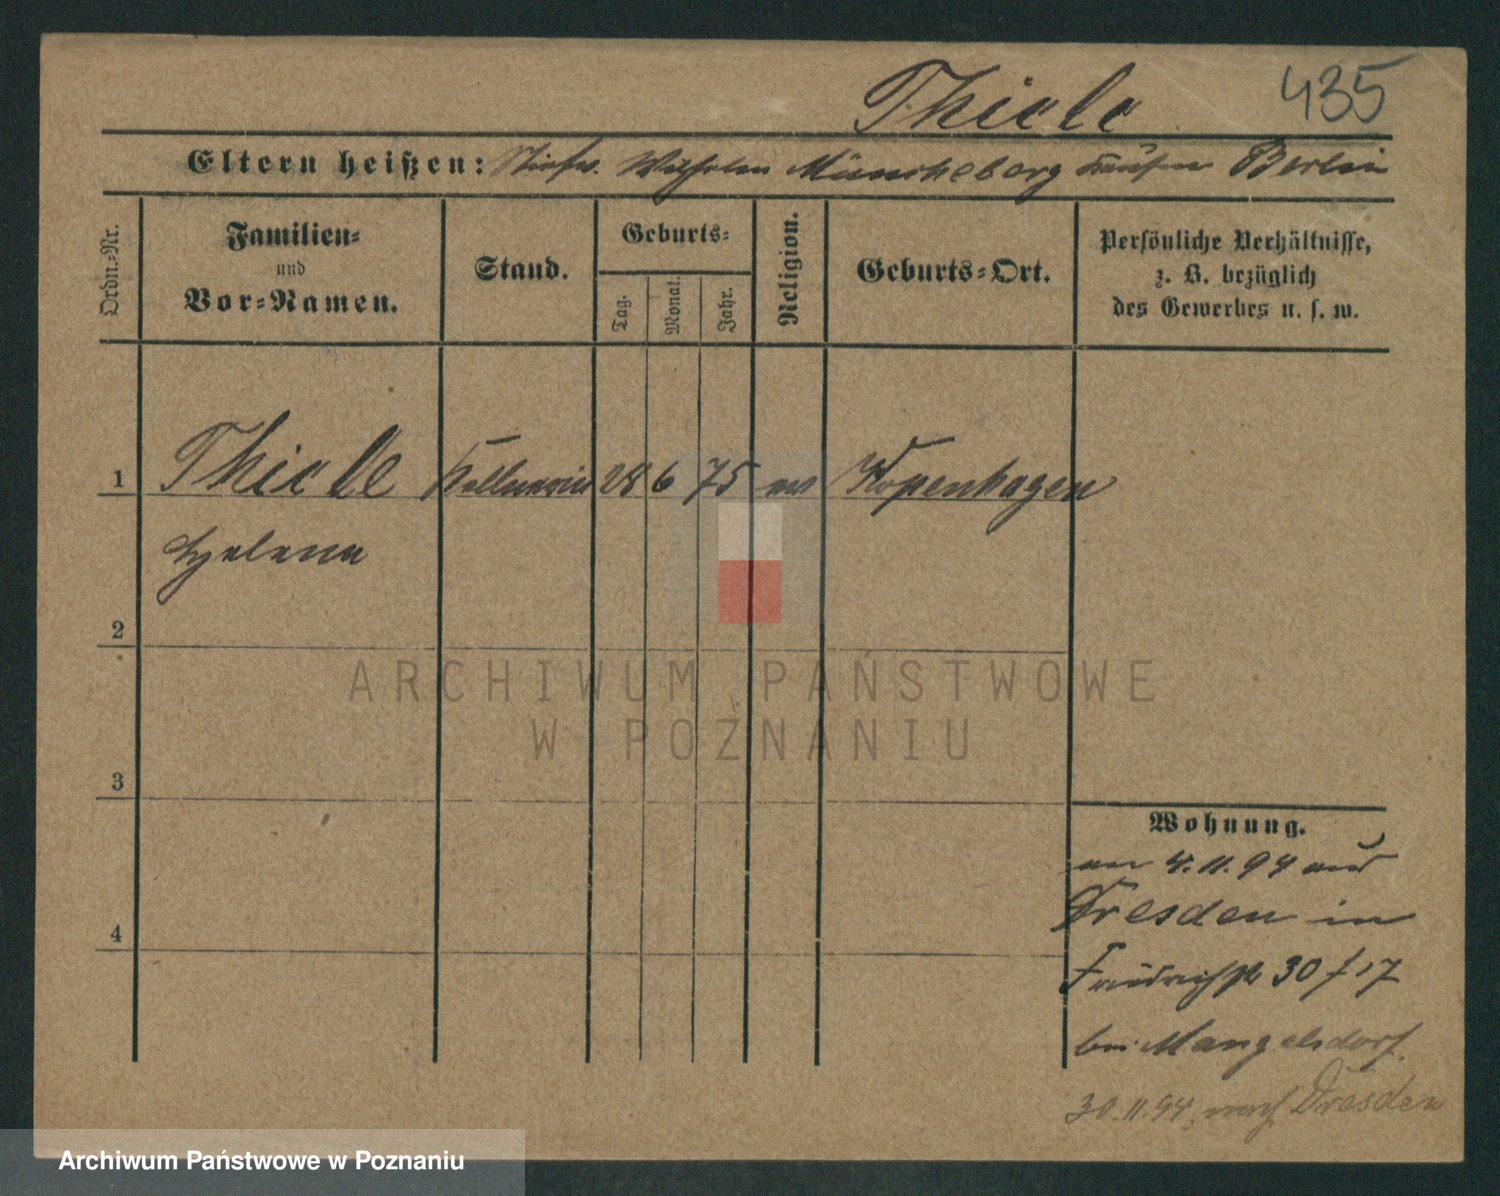 Thiele 435
Eltern heißen: Wilhelm Müncheberg Berlin
Ordn.-Nr.
Familien-
und
Vor-Namen.
Stand.
Geburts-
Tag.
Monat.
Jahr.
Religion.
Geburts-Ort.
Persönliche Verhältnisse,
z. B. bezüglich
des Gewerbes u. s. w.
1 Thiele Kellnerin 28 6 75 ev Kopenhagen
Helene
2
3
4
Wohnung.
am 4.11.94 aus
Dresden in
Friedrichstr 30 / 17
bei Mangelsdorf.
30.11.94. nach Dresden
ARCHIWUM PAŃSTWOWE
W POZNANIU
Archiwum Państwowe w Poznaniu